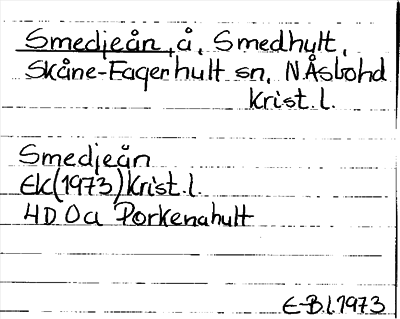 Smedjeån, å, Smedhult,
Skåne-Fagerhult sn, N Åsbohd
Krist. l.
Smedjeån
Ek(1973) Krist. l.
4D 0a Porkenahult
E-B.l.1973